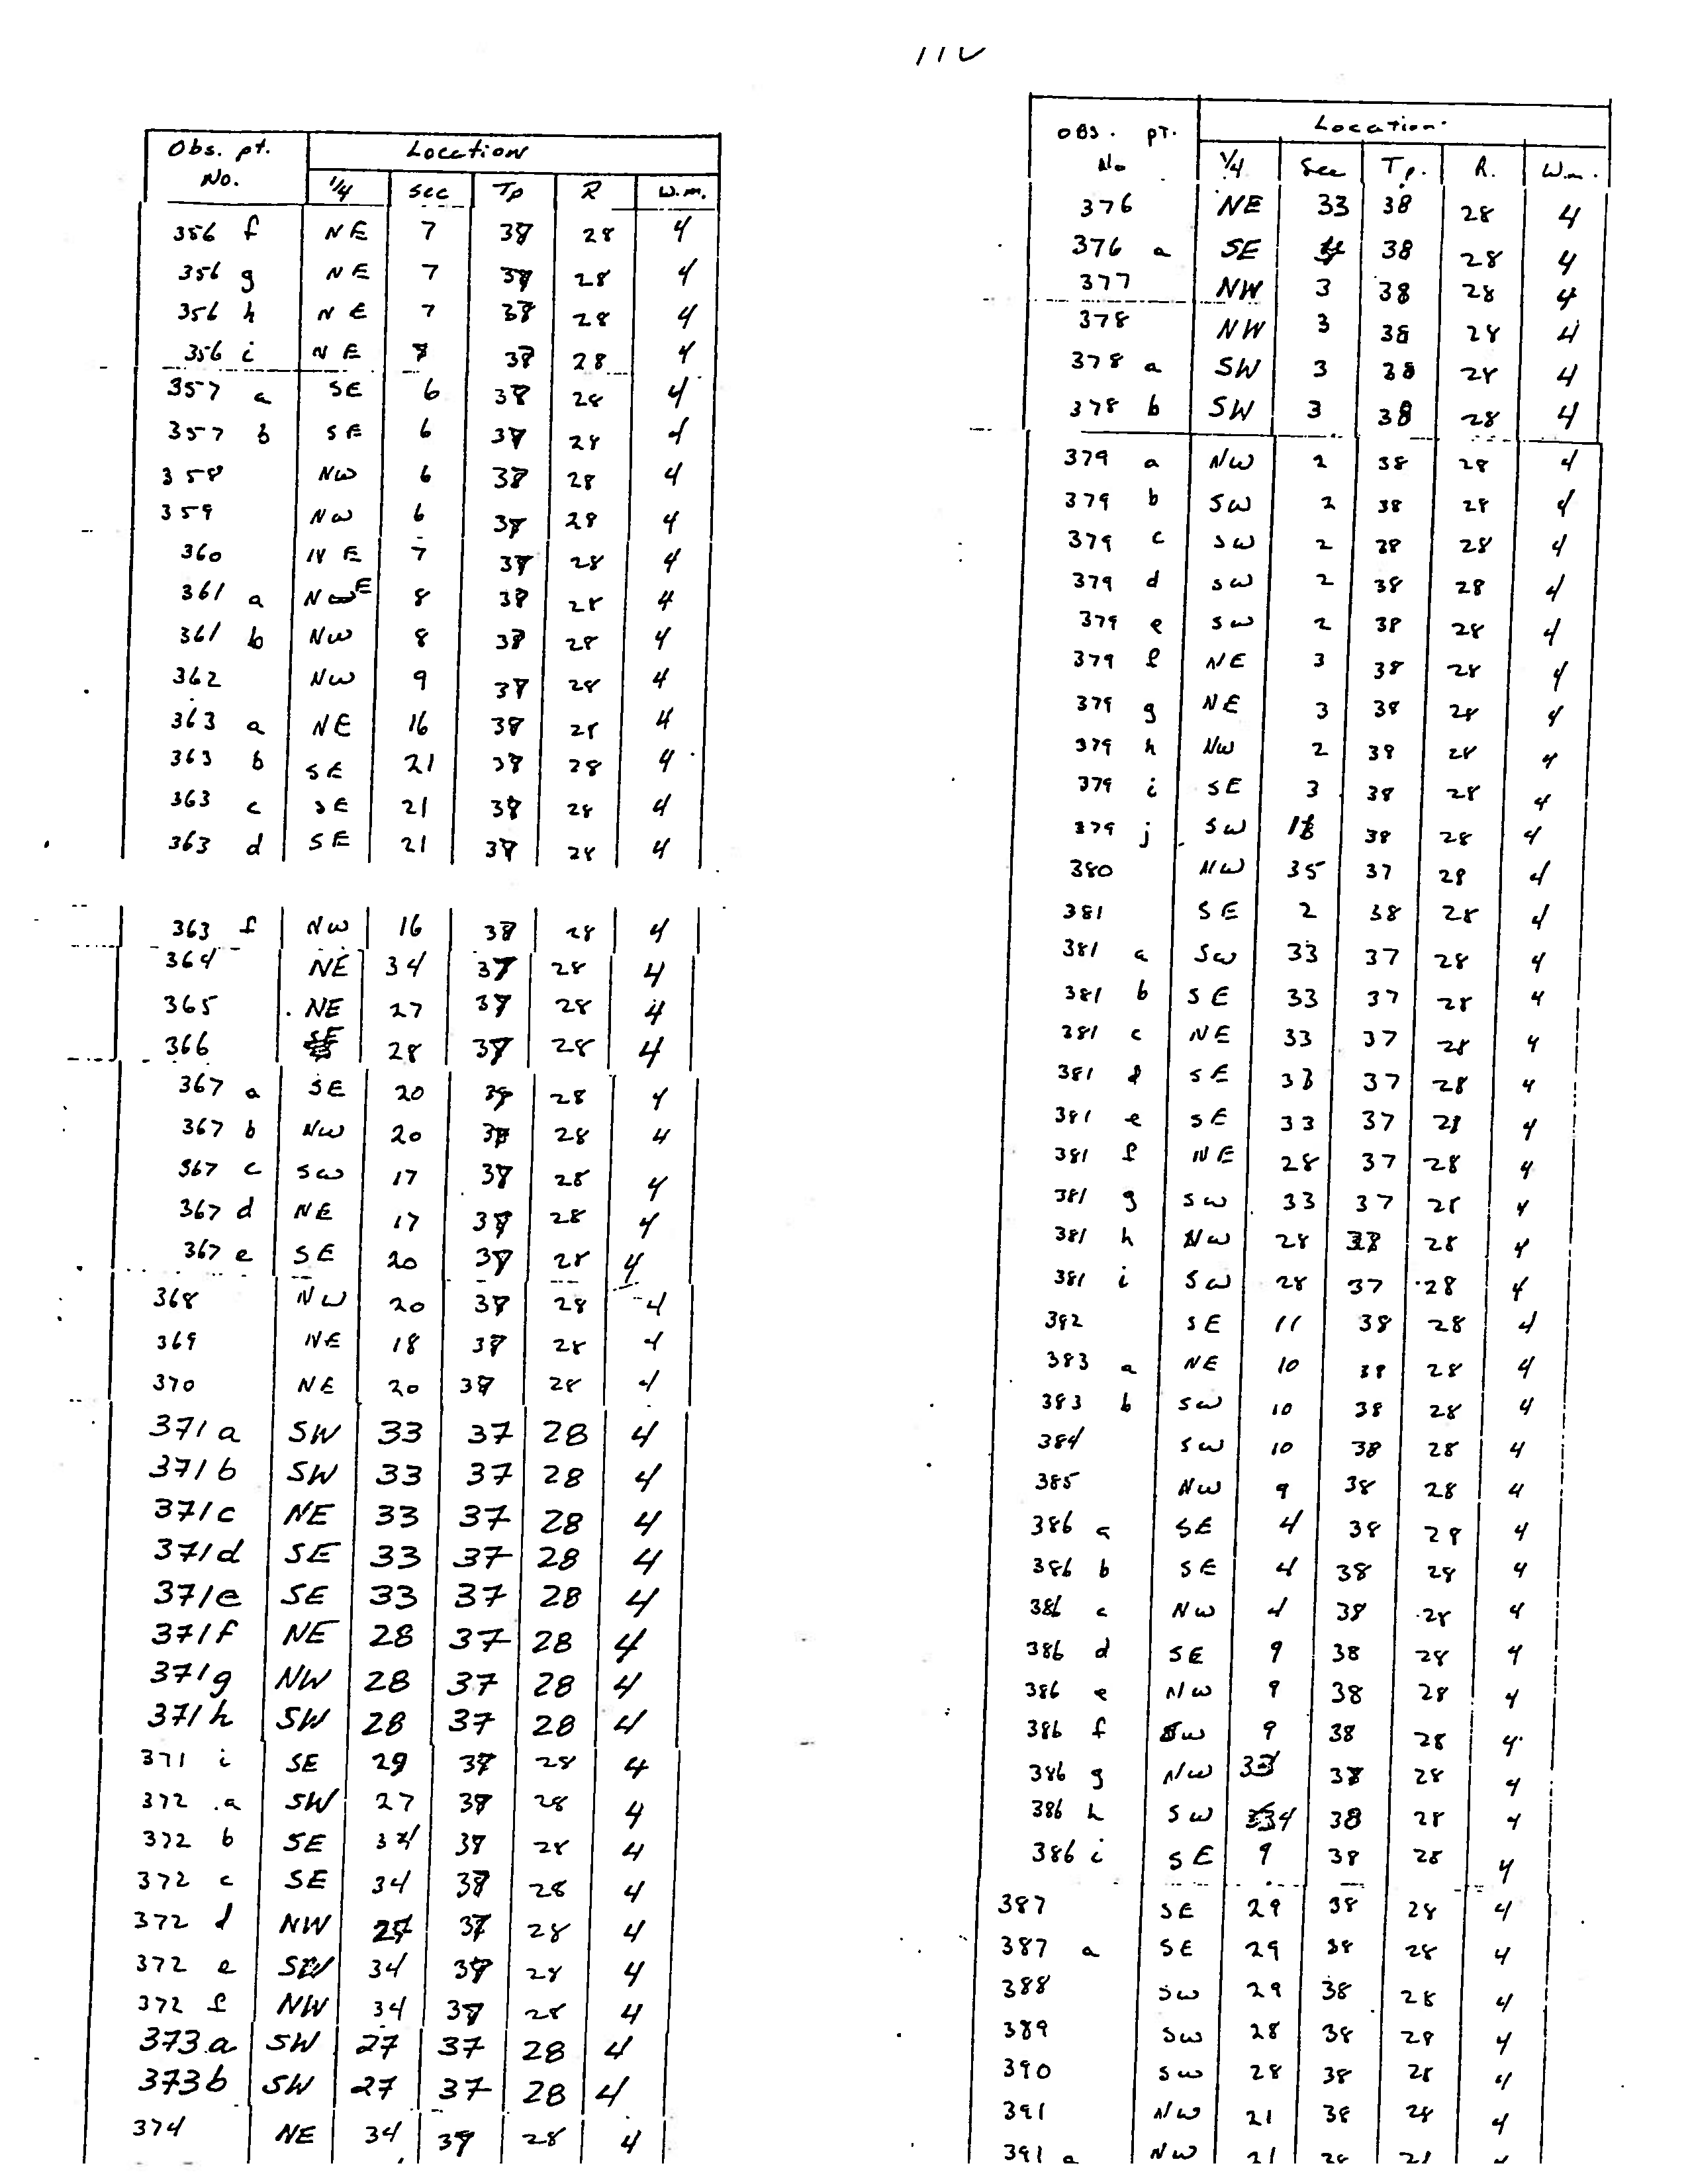 11V
Obs. pt. No. Location
1/4 sec Tp R w.m.
356 f NE 7 37 28 4
356 g NE 7 37 28 4
356 h NE 7 37 28 4
356 i NE 7 37 28 4
357 a SE 6 37 28 4
357 b SE 6 37 28 4
358 NW 6 37 28 4
359 NW 6 37 28 4
360 NE 7 37 28 4
361 a NE 8 37 28 4
361 b NW 8 37 28 4
362 NW 9 37 28 4
363 a NE 16 37 28 4
363 b SE 21 37 28 4
363 c SE 21 37 28 4
363 d SE 21 37 28 4
363 f NW 16 37 28 4
364 NE 34 37 28 4
365 NE 27 37 28 4
366 SE 28 37 28 4
367 a SE 20 37 28 4
367 b NW 20 37 28 4
367 c SW 17 37 28 4
367 d NE 17 37 28 4
367 e SE 20 37 28 4
368 NW 20 37 28 4
369 NE 18 37 28 4
370 NE 20 37 28 4
371a SW 33 37 28 4
371b SW 33 37 28 4
371c NE 33 37 28 4
371d SE 33 37 28 4
371e SE 33 37 28 4
371f NE 28 37 28 4
371g NW 28 37 28 4
371h SW 28 37 28 4
371 i SE 29 37 28 4
372 a SW 27 37 28 4
372 b SE 34 37 28 4
372 c SE 34 37 28 4
372 d NW 27 37 28 4
372 e SW 34 37 28 4
372 f NW 34 37 28 4
373a SW 27 37 28 4
373b SW 27 37 28 4
374 NE 34 37 28 4
OBS. PT. No Location
1/4 Sec Tp. R. W.m.
376 NE 33 38 28 4
376 a SE 38 28 4
377 NW 3 38 28 4
378 NW 3 38 28 4
378 a SW 3 38 28 4
378 b SW 3 38 28 4
379 a NW 2 38 28 4
379 b SW 2 38 28 4
379 c SW 2 38 28 4
379 d SW 2 38 28 4
379 e SW 2 38 28 4
379 f NE 3 38 28 4
379 g NE 3 38 28 4
379 h NW 2 38 28 4
379 i SE 3 38 28 4
379 j SW 38 28 4
380 NW 35 37 28 4
381 SE 2 38 28 4
381 a SW 33 37 28 4
381 b SE 33 37 28 4
381 c NE 33 37 28 4
381 d SE 33 37 28 4
381 e SE 33 37 28 4
381 f NE 28 37 28 4
381 g SW 33 37 28 4
381 h NW 28 37 28 4
381 i SW 28 37 28 4
382 SE 11 38 28 4
383 a NE 10 38 28 4
383 b SW 10 38 28 4
384 SW 10 38 28 4
385 NW 9 38 28 4
386 a SE 4 38 28 4
386 b SE 4 38 28 4
386 c NW 4 38 28 4
386 d SE 9 38 28 4
386 e NW 9 38 28 4
386 f SW 9 38 28 4
386 g NW 33 38 28 4
386 h SW 34 38 28 4
386 i SE 9 38 28 4
387 SE 29 38 28 4
387 a SE 29 38 28 4
388 SW 29 38 28 4
389 SW 28 38 28 4
390 SW 28 38 28 4
391 NW 21 38 28 4
391 a NW 21